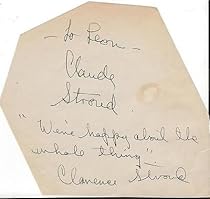 - To Leon -
Claude
Stroud
"We're happy about the
whole thing"
Clarence Stroud